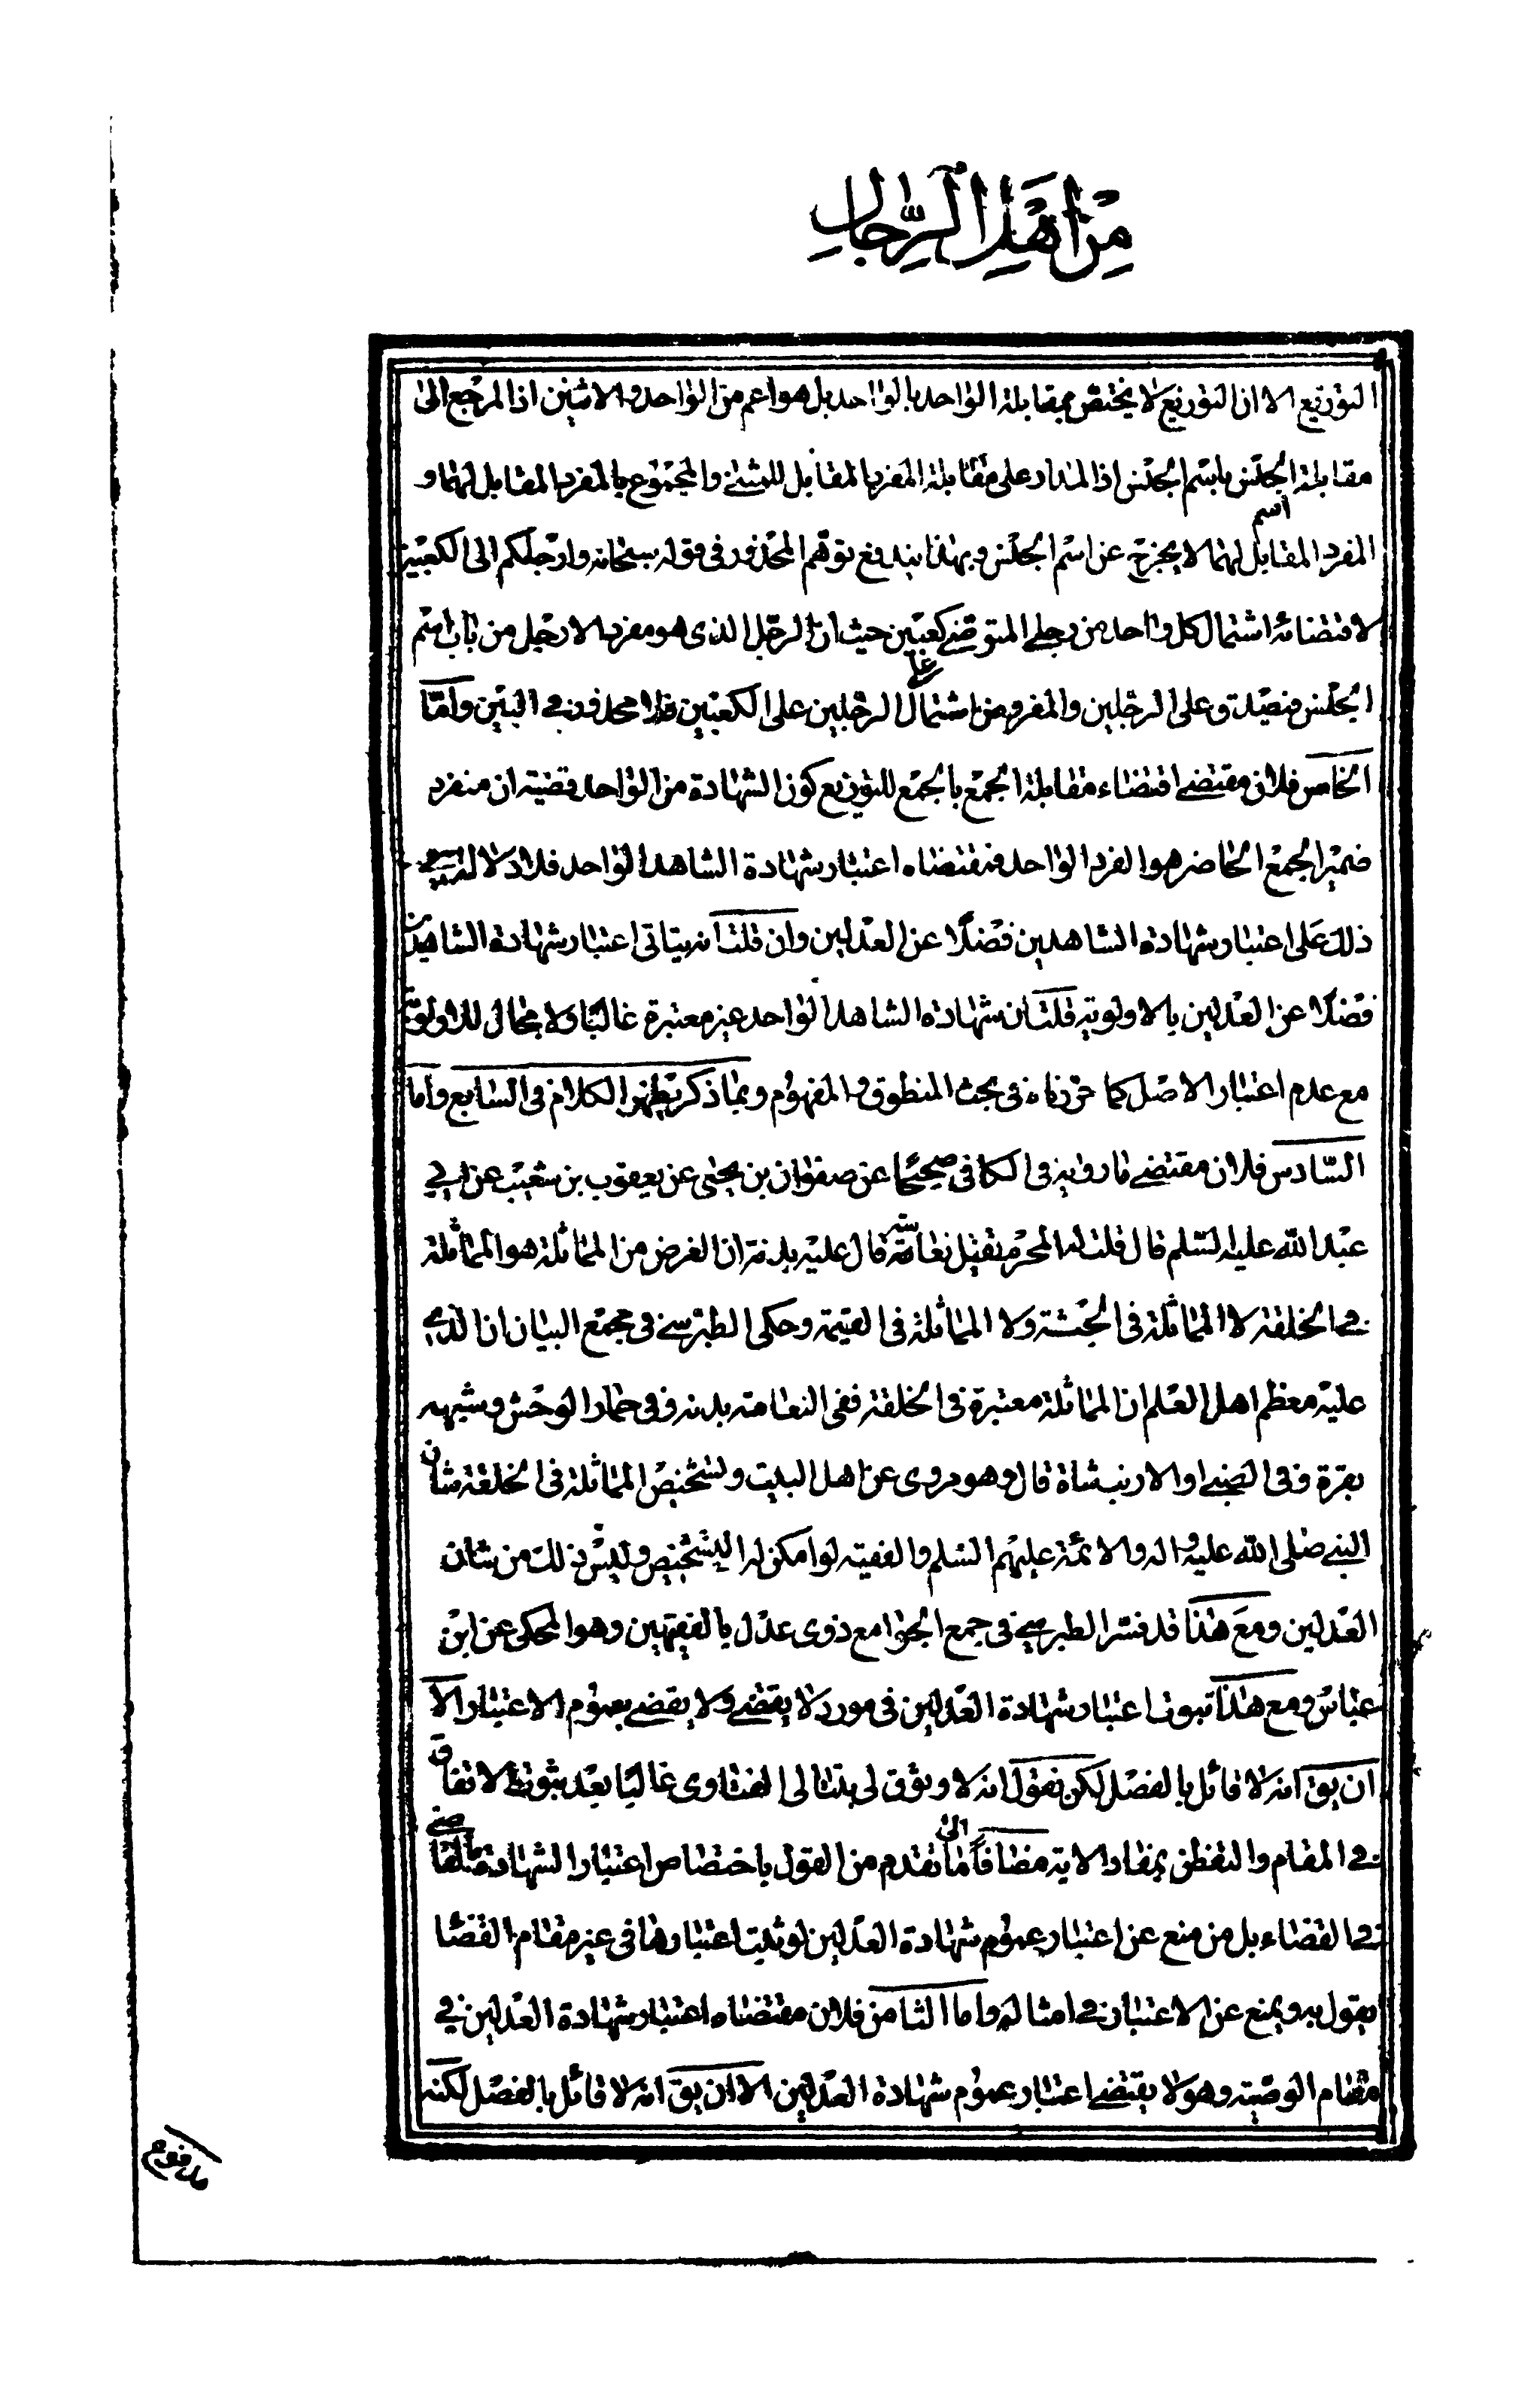 من اهل الرجال
التوزيع الا ان التوزيع لا يختص بمقابلة الواحد بالواحد بل هو اعم من الواحد والاثنين اذ المرجع الى
مقابلة الجنس باسم الجنس اذ المدار على مقابلة المفرد المقابل للمثنى والمجموع بالمفرد المقابل لهما و
اسم
المفرد المقابل لهما لا يخرج عن اسم الجنس وبهذا يندفع توهم المحذور في قوله سبحانه وارجلكم الى الكعبين
لاقتضائه اشتمال كل واحد من رجلي المتوضى كعبين حيث ان الرجل الذى هو مفرد الارجل من باب اسم
الجنس فيصدق على الرجلين والمفروض اشتمال الرجلين على الكعبين فلا محذور في البين واما
الخامس فلان مقتضى اقتضاء مقابلة الجمع بالجمع للتوزيع كون الشهادة من الواحد قضية ان منفرد
ضمير الجمع الحاضر هو الفرد الواحد فمقتضاه اعتبار شهادة الشاهد الواحد فلا دلالة في
ذلك على اعتبار شهادة الشاهدين فضلا عن العدلين وان قلت انه يتاتى اعتبار شهادة الشاهدين
فضلا عن العدلين بالاولوية قلت ان شهادة الشاهد الواحد غير معتبرة غالبا ولا مجال للاولوية
مع عدم اعتبار الاصل كما حررناه في بحث المنطوق والمفهوم وبما ذكر يظهر الكلام في السابع واما
السادس فلان مقتضى ما رواه في الكافي صحيحا عن صفوان بن يحيى عن يعقوب بن شعيب عن ابي
عبد الله عليه السلم قال قلت له المحرم يقتل نعامة قال عليه بدنة ان الغرض من المماثلة هو المماثلة
في الخلقة لا المماثلة في الجثة ولا المماثلة في القيمة وحكى الطبرسي في مجمع البيان ان الذي
عليه معظم اهل العلم ان المماثلة معتبرة في الخلقة ففي النعامة بدنه وفي حمار الوحش وشبهه
بقرة وفي الضبي او الارنب شاة قال وهو مروى عن اهل البيت وتشخيص المماثلة في الخلقة شان
النبي صلى الله عليه واله والائمة عليهم السلم والفقيه لو امكن له التشخيص وليس ذلك من شان
العدلين ومع هذا قد فسر الطبرسي في جمع الجوامع ذوى عدل بالفقيهين وهو المحكى عن ابن
عباس ومع هذا ثبوت اعتبار شهادة العدلين في مورد لا يقضي ولا يقضي بعموم الاعتبار الا
ان يق انه لا قائل بالفصل لكن نقول انه لا وثوق لى بلتالى الفتاوى غالبا بعد ثبوت الاتفاق
في المقام والتفطن بمفاد الاية مضافا الى ما تقدم من القول باختصاص اعتبار الشهادة
في القضاء بل من منع عن اعتبار عموم شهادة العدلين لو ثبت اعتبارها في غير مقام القضا
يقول به ويمنع عن الاعتبار في امثاله واما الثامن فلان مقتضاه اعتبار شهادة العدلين في
مقام الوصية وهو لا يقتضي اعتبار عموم شهادة العدلين الا ان يق انه لا قائل بالفصل لكنه
مدفوع